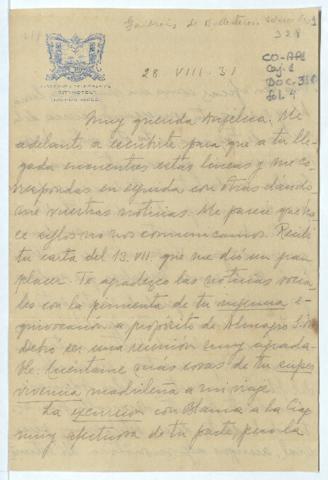 Gaibrois de Ballesteros
328
CO-API
Caj. 1
Doc. 328
fol. 4
28 VIII-31
Muy querida Angélica: Me
adelanto a escribirte para que a tu lle
gada encuentres estas líneas y me co-
rrespondas en seguida con otras dándo
me vuestras noticias. Me parece que ha
ce siglos no nos comunicamos. Recibí
tu carta del 13. VII. que me dió un gran
placer. Te agradezco las noticias socia
les con la pimienta de tu ingenua e-
quivocación a propósito de Almagro
Debió ser una reunión muy agrada-
ble. Cuéntame más cosas de tu super
vivencia madrileña a mi viaje.
La excursión con Blanca a la
muy afectuosa de tu parte, pero la